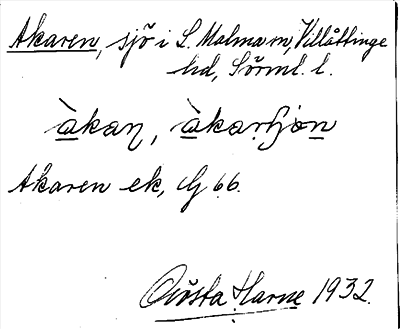 Akaren, sjö i L. Malma sn, Villåttinge
hd, Sörml. l.
àkaṇ, àkaṛʃjo̤n
Akaren ek, G 66.
Gösta Harne 1932.